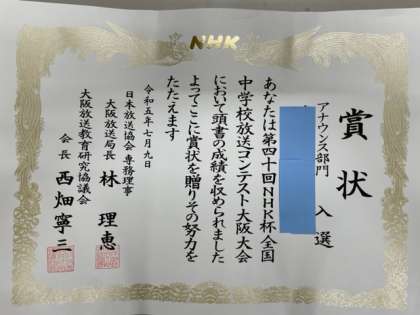 NHK
賞状
アナウンス部門
入選
あなたは第四十回NHK杯全国
中学校放送コンテスト大阪大会
において頭書の成績を収められました
よってここに賞状を贈りその努力を
たたえます
令和五年七月九日
日本放送協会 専務理事
大阪放送局長 林 理恵
大阪放送教育研究協議会
会長 西畑寧三